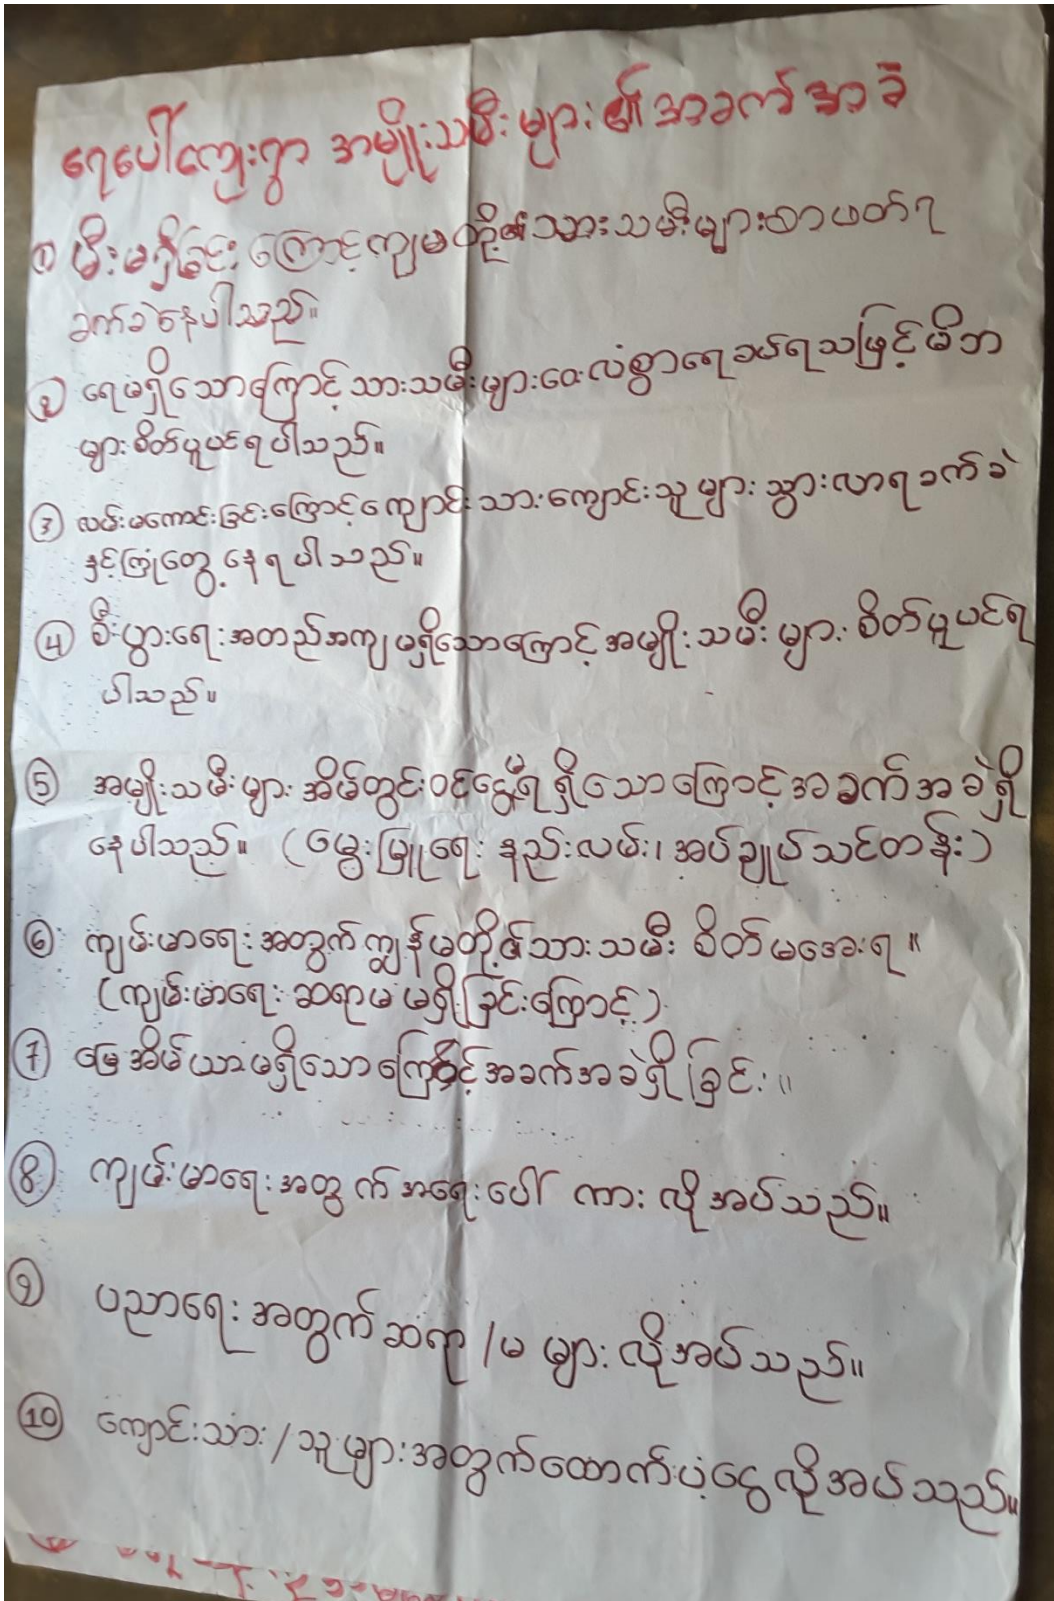 ရေပေါ်ကျေးရွာ အမျိုးသမီးများ၏အခက်အခဲ
① မီးမရှိခြင်းကြောင့်ကျမတို့၏သားသမီးများစာဖတ်ရ
ခက်ခဲနေပါသည်။
② ရေမရှိသောကြောင့်သားသမီးများဝေးလံစွာရေခပ်ရသဖြင့်မိဘ
များစိတ်ပူပင်ရပါသည်။
③ လမ်းမကောင်းခြင်းကြောင့်ကျောင်းသားကျောင်းသူများသွားလာရခက်ခဲ
နှင့်ကြုံတွေ့နေရပါသည်။
④ စီးပွားရေးအတည်အကျမရှိသောကြောင့်အမျိုးသမီးများစိတ်ပူပင်ရ
ပါသည်။
⑤ အမျိုးသမီးများအိမ်တွင်းဝင်ငွေမရရှိသောကြောင့်အခက်အခဲရှိ
နေပါသည်။ (မွေးမြူရေးနည်းလမ်း၊အပ်ချုပ်သင်တန်း)
⑥ ကျမ်းမာရေးအတွက်ကျွန်မတို့၏သားသမီးစိတ်မအေးရ။
(ကျမ်းမာရေးဆရာမမရှိခြင်းကြောင့်)
⑦ မြေအိမ်ယာမရှိသောကြောင့်အခက်အခဲရှိခြင်း။
⑧ ကျမ်းမာရေးအတွက်အရေးပေါ်ကားလိုအပ်သည်။
⑨ ပညာရေးအတွက်ဆရာ/မများလိုအပ်သည်။
⑩ ကျောင်းသား/သူများအတွက်ထောက်ပံ့ငွေလိုအပ်သည်။